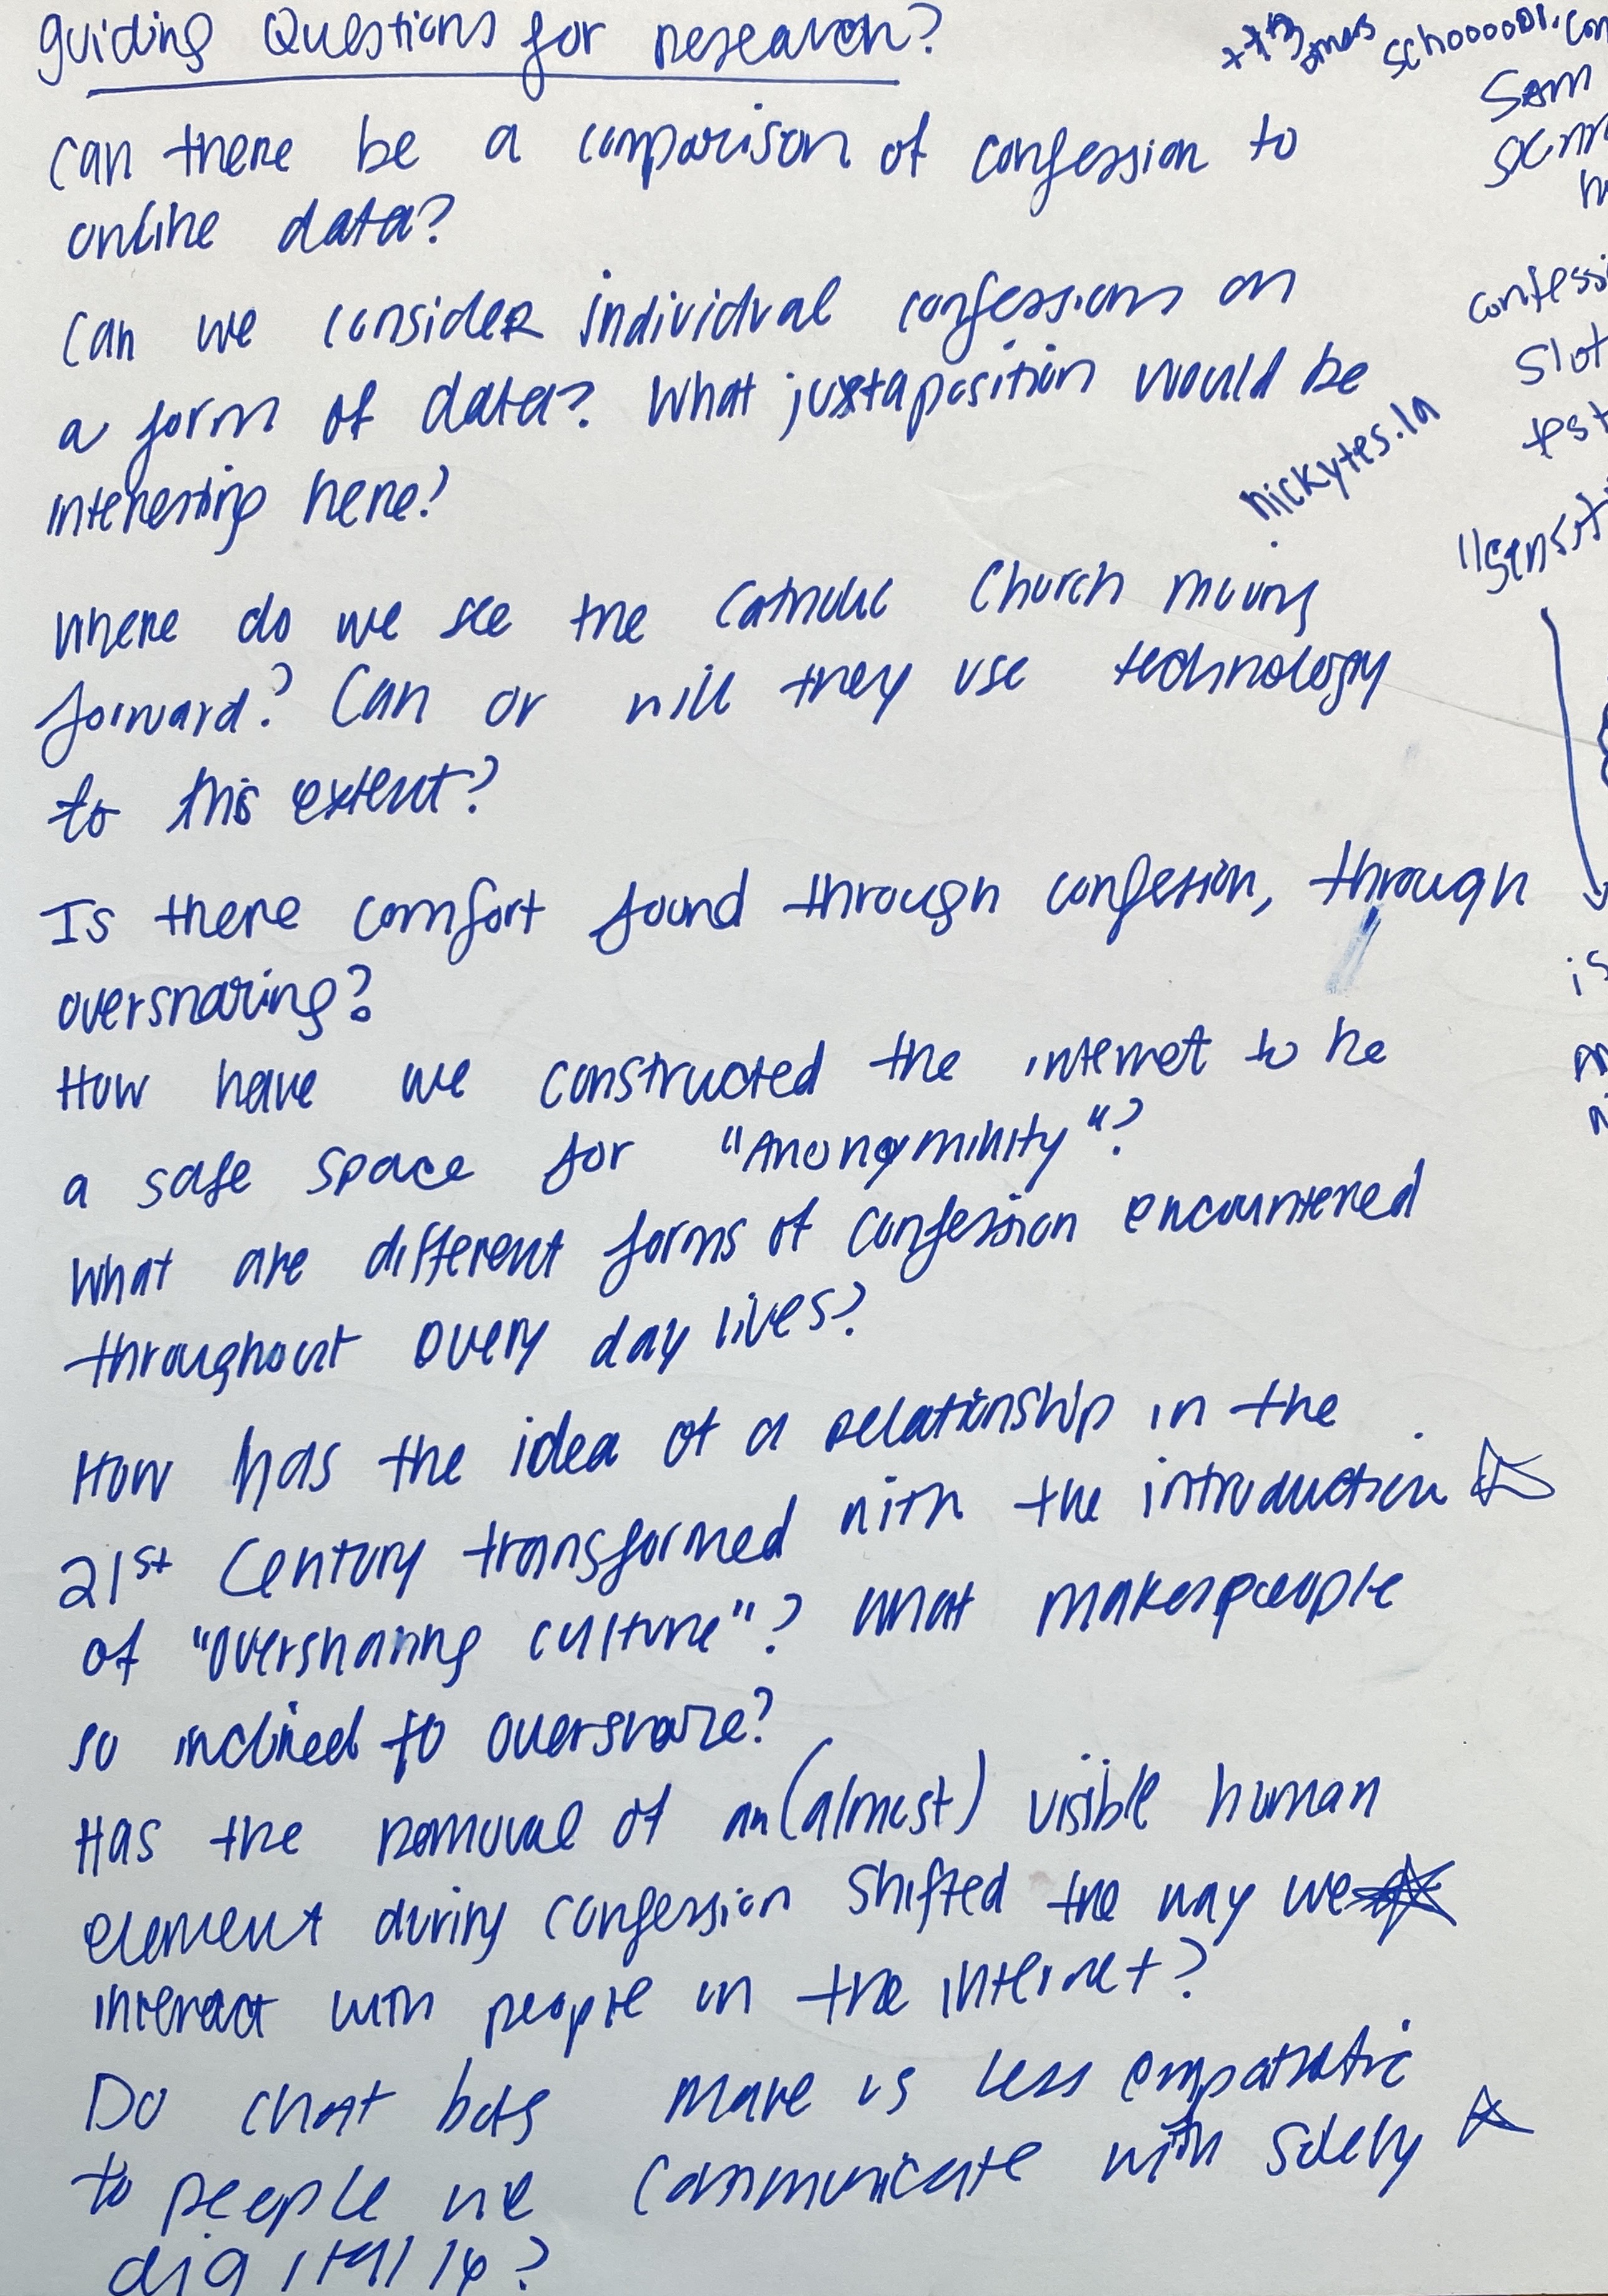 guiding Questions for research?
Can there be a comparison of confession to
online data?
Can we consider individual confessions on
a form of data? What juxtaposition would be
interesting here?
Where do we see the Catholic Church moving
forward? Can or will they use technology
to this extent?
Is there comfort found through confession, through
oversharing?
How have we constructed the internet to be
a safe space for "Anonyminity"?
What are different forms of confession encountered
throughout every day lives?
How has the idea of a relationship in the
21st Century transformed with the introduction
of "oversharing culture"? What makes people
so inclined to overshare?
Has the removal of an (almost) visible human
element during confession shifted the way we
interact with people on the internet?
Do chat bots make us less empathetic
to people we communicate with solely
digitally?
schoooool.com
Sam
confessi
slot
test
nickytes.la
"sensit
is